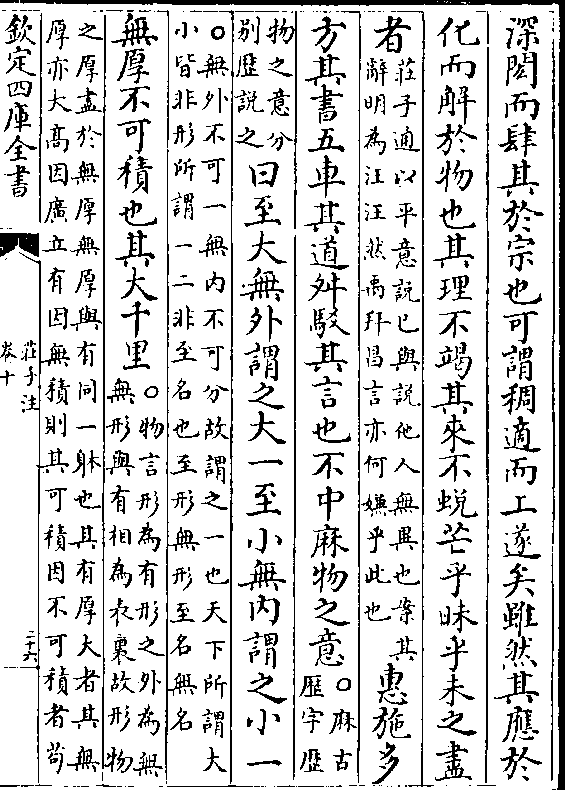 深閎而肆其於宗也可謂稠適而工遂矣雖然其應於
化而解於物也其理不竭其來不蛻芒乎昧乎未之盡
者
莊子通以平意說已與說他人無異也案其
辭明為汪汪然禹拜昌言亦何嫌乎此也
惠施多
方其書五車其道舛駮其言也不中厤物之意
○厤古
歷字歷
物之意分
別歷說之
曰至大無外謂之大一至小無内謂之小一
○無外不可一無内不可分故謂之一也天下所謂大
小皆非形所謂一二非至名也至形無形至名無名
無厚不可積也其大千里
○物言形為有形之外為無
無形與有相為表裏故形物
之厚盡於無厚無厚與有同一躰也其有厚大者其無
厚亦大高因廣立有因無積則其可積因不可積者苟
欽定四庫全書
莊子注
卷十
二十六